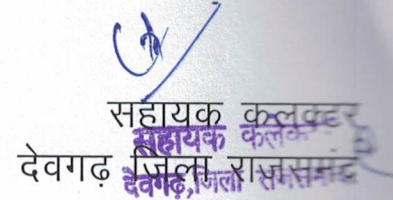 सहायक कलक्टर
सहायक कलक
देवगढ़ जिला राजसमंद
देवगढ़,जिला